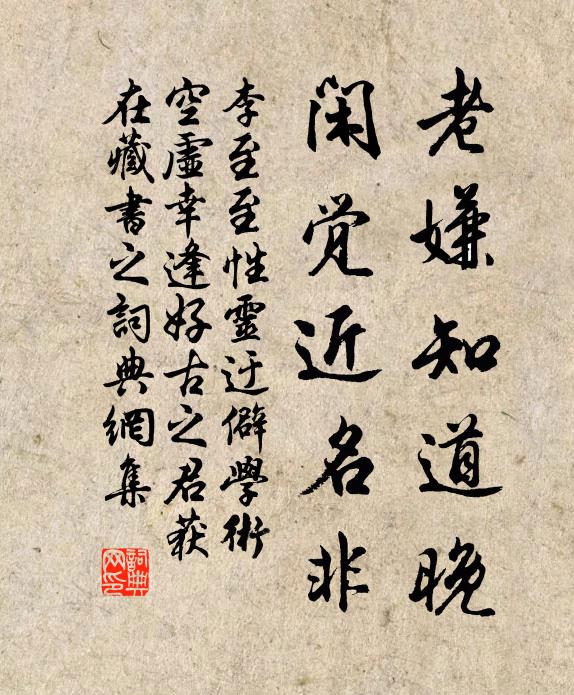 老嫌知道晚
閑觉近名非
李至至性靈迂僻學術
空虛幸逢好古之君获
在藏書之詞典網集
詞典网印